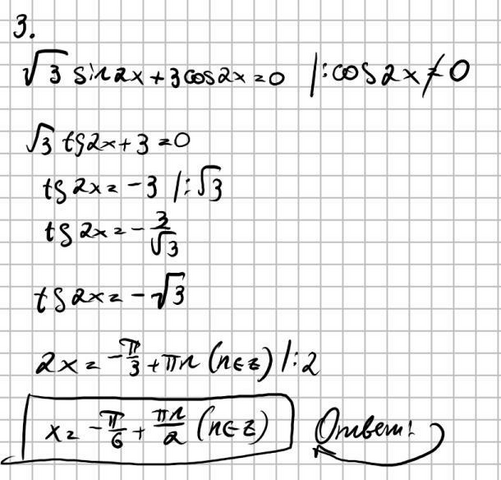 3.
√3 sin2x + 3cos2x = 0 |: cos2x ≠ 0
√3 tg2x + 3 = 0
tg2x = -3 |: √3
tg2x = -3/√3
tg2x = -√3
2x = -π/3 + πn (n∈z) |: 2
x = -π/6 + πn/2 (n∈z) Ответ: